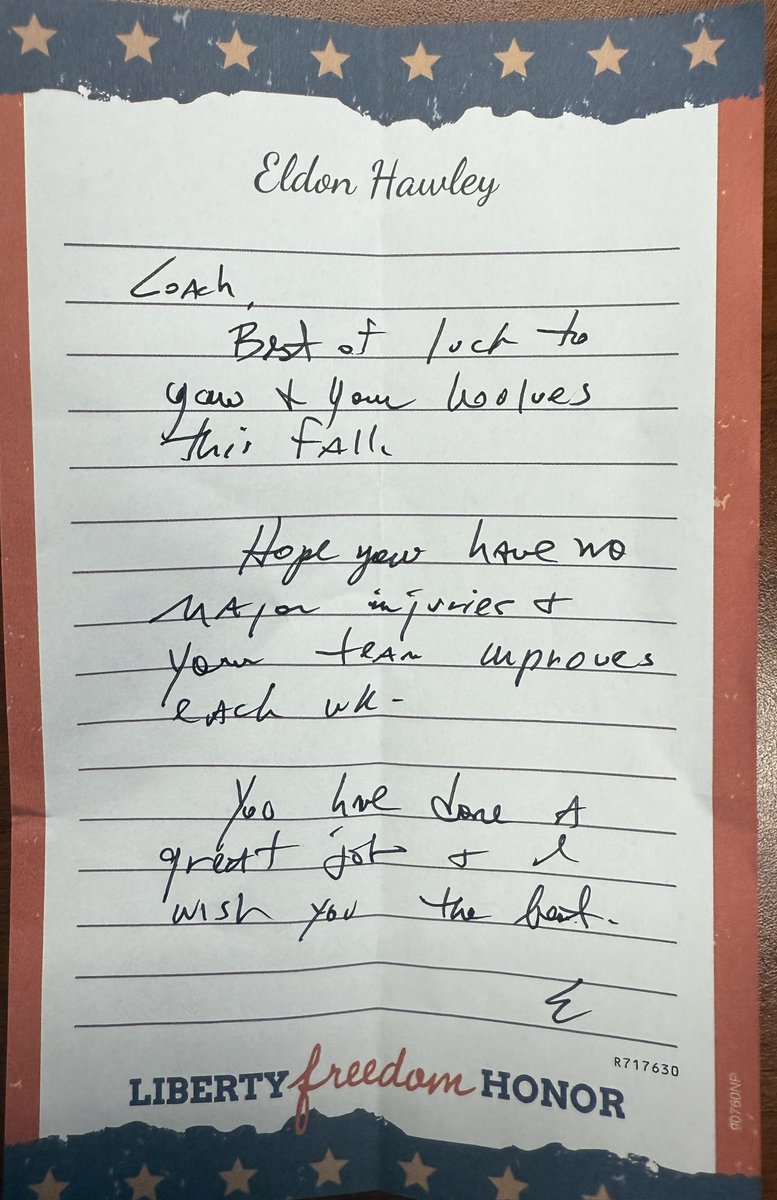 Eldon Hawley
Coach,
Best of luck to
you & your wolves
this fall.
Hope you have no
major injuries &
your team improves
each wk-
You have done a
great job & I
wish you the best.
E
R717630
LIBERTY freedom HONOR
90760NP